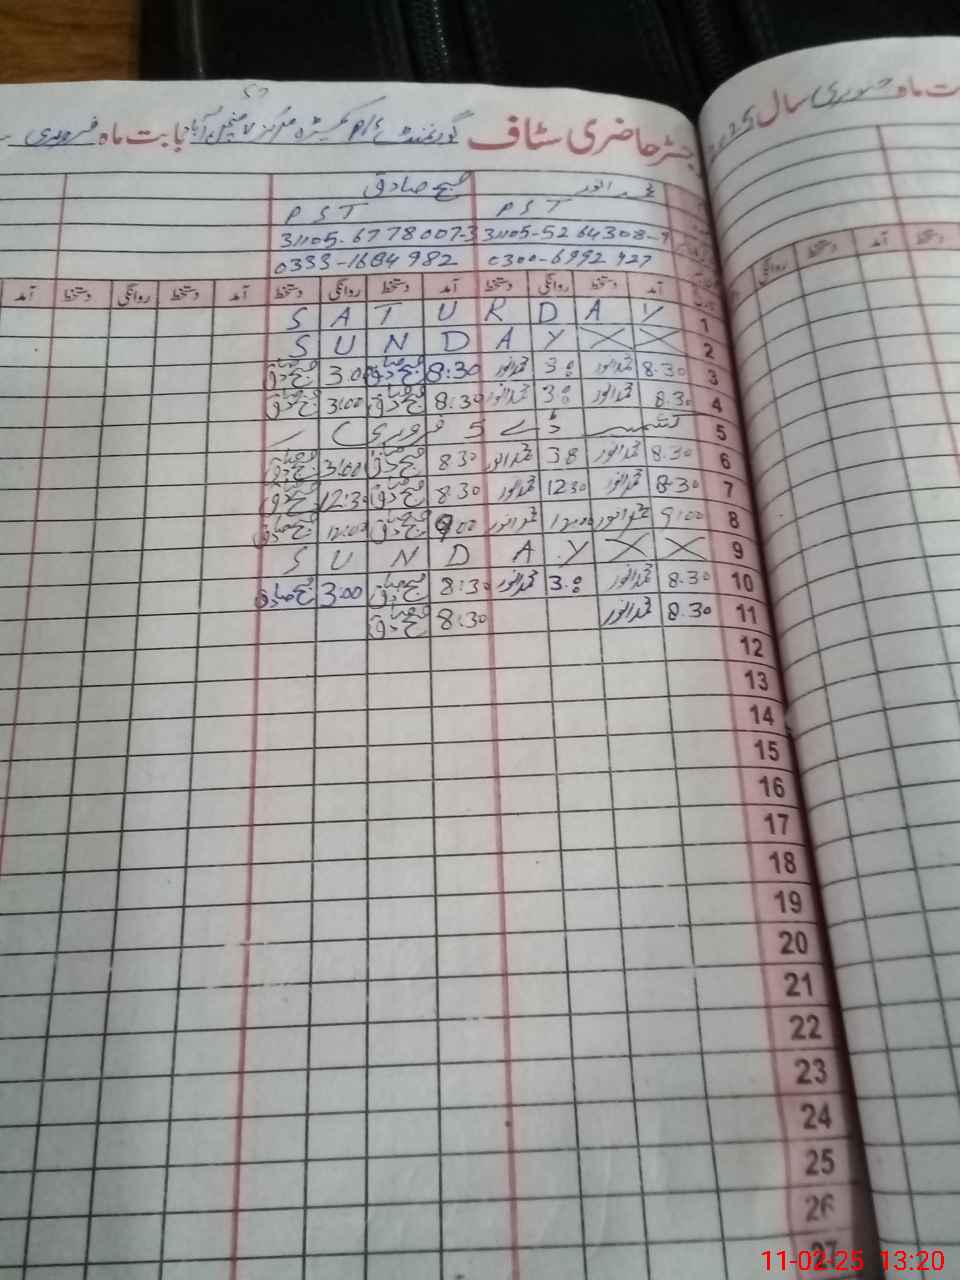 رجسٹر حاضری سٹاف گورنمنٹ بابت ماہ فروری
بت ماہ جنوری سال 25
محمد انور صبح صادق
PST PST
31105-5264308-9 31105-6778007-3
0300-6992427 0333-1684982
آمد دستخط روانگی دستخط آمد دستخط روانگی دستخط آمد دستخط روانگی دستخط آمد
1 S A T U R D A Y
2 S U N D A Y X X
3 8.30 محمد انور 3:0 محمد انور 8:30 صبح صادق 3.00 صبح صادق
4 8.30 محمد انور 3:0 محمد انور 8:30 صبح صادق 3:00 صبح صادق
5 کشمیر ڈے 5 فروری
6 8.30 محمد انور 3:0 محمد انور 8.30 صبح صادق 3:00 صبح صادق
7 8.30 محمد انور 1230 محمد انور 8.30 صبح صادق 12:30 صبح صادق
8 9:00 محمد انور 12:00 محمد انور 9:00 صبح صادق 12:00 صبح صادق
9 S U N D A Y X X
10 8.30 محمد انور 3:0 محمد انور 8:30 صبح صادق 3:00 صبح صادق
11 8.30 محمد انور 8:30 صبح صادق
12
13
14
15
16
17
18
19
20
21
22
23
24
25
26
27
11-02-25 13:20